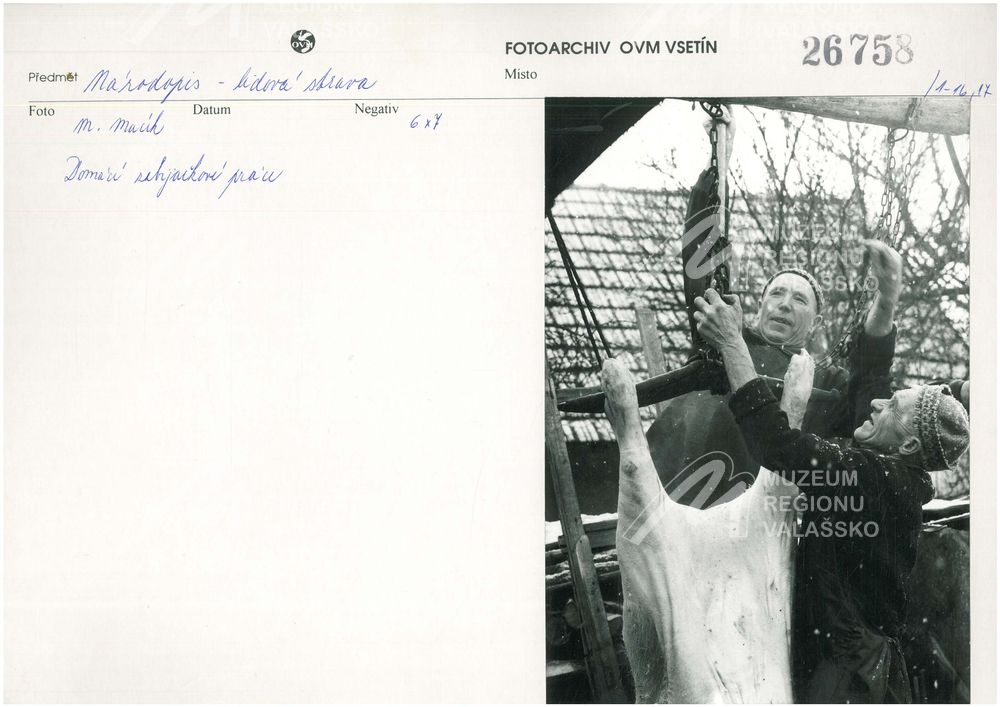 OVM
FOTOARCHIV OVM VSETÍN
26758
Předmět Národopis - lidová strava
Místo
/1-16,17
Foto Datum Negativ
M. Macík 6x7
Domácí zabíjačkové práce
MUZEUM
REGIONU
VALAŠSKO
MUZEUM
REGIONU
VALAŠSKO
REGIONU
VALAŠSKO